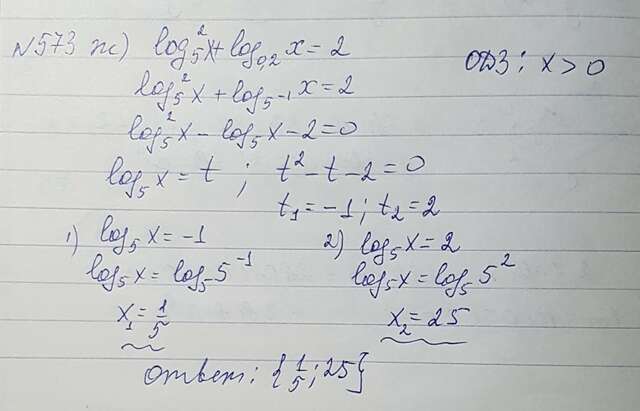 N573 ж) log₅²x + log₀,₂ x = 2
ОДЗ: x > 0
log₅²x + log₅₋₁ x = 2
log₅²x - log₅x - 2 = 0
log₅x = t ; t² - t - 2 = 0
t₁ = -1 ; t₂ = 2
1) log₅x = -1
log₅x = log₅5⁻¹
x₁ = 1/5
2) log₅x = 2
log₅x = log₅5²
x₂ = 25
Ответ: {1/5; 25}